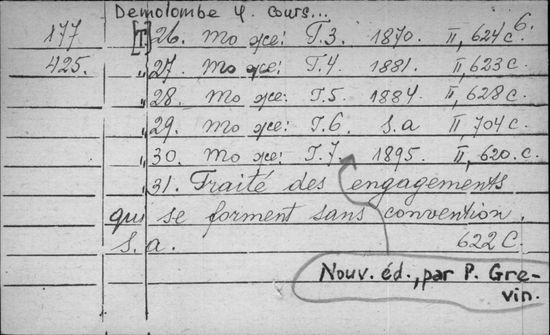 Demolombe Ч. Cours...
6.
177 [T.] 26. То же: T.3. 1870. II, 624 c.
425. „ 27. То же: T.4. 1881. II, 623 c.
„ 28. То же: T.5. 1884. II, 628 c.
„ 29. То же: T.6. S.a II, 704 c.
„ 30. То же: T.7. 1895. II, 620. c.
31. Traité des engagements
qui se forment sans convention.
S.a. 622 C.
Nouv. éd., par P. Gre-
vin.